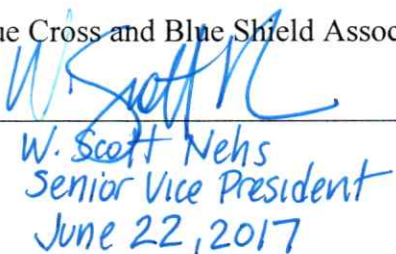 ue Cross and Blue Shield Assoc
W. Scott Nehs
Senior Vice President
June 22, 2017